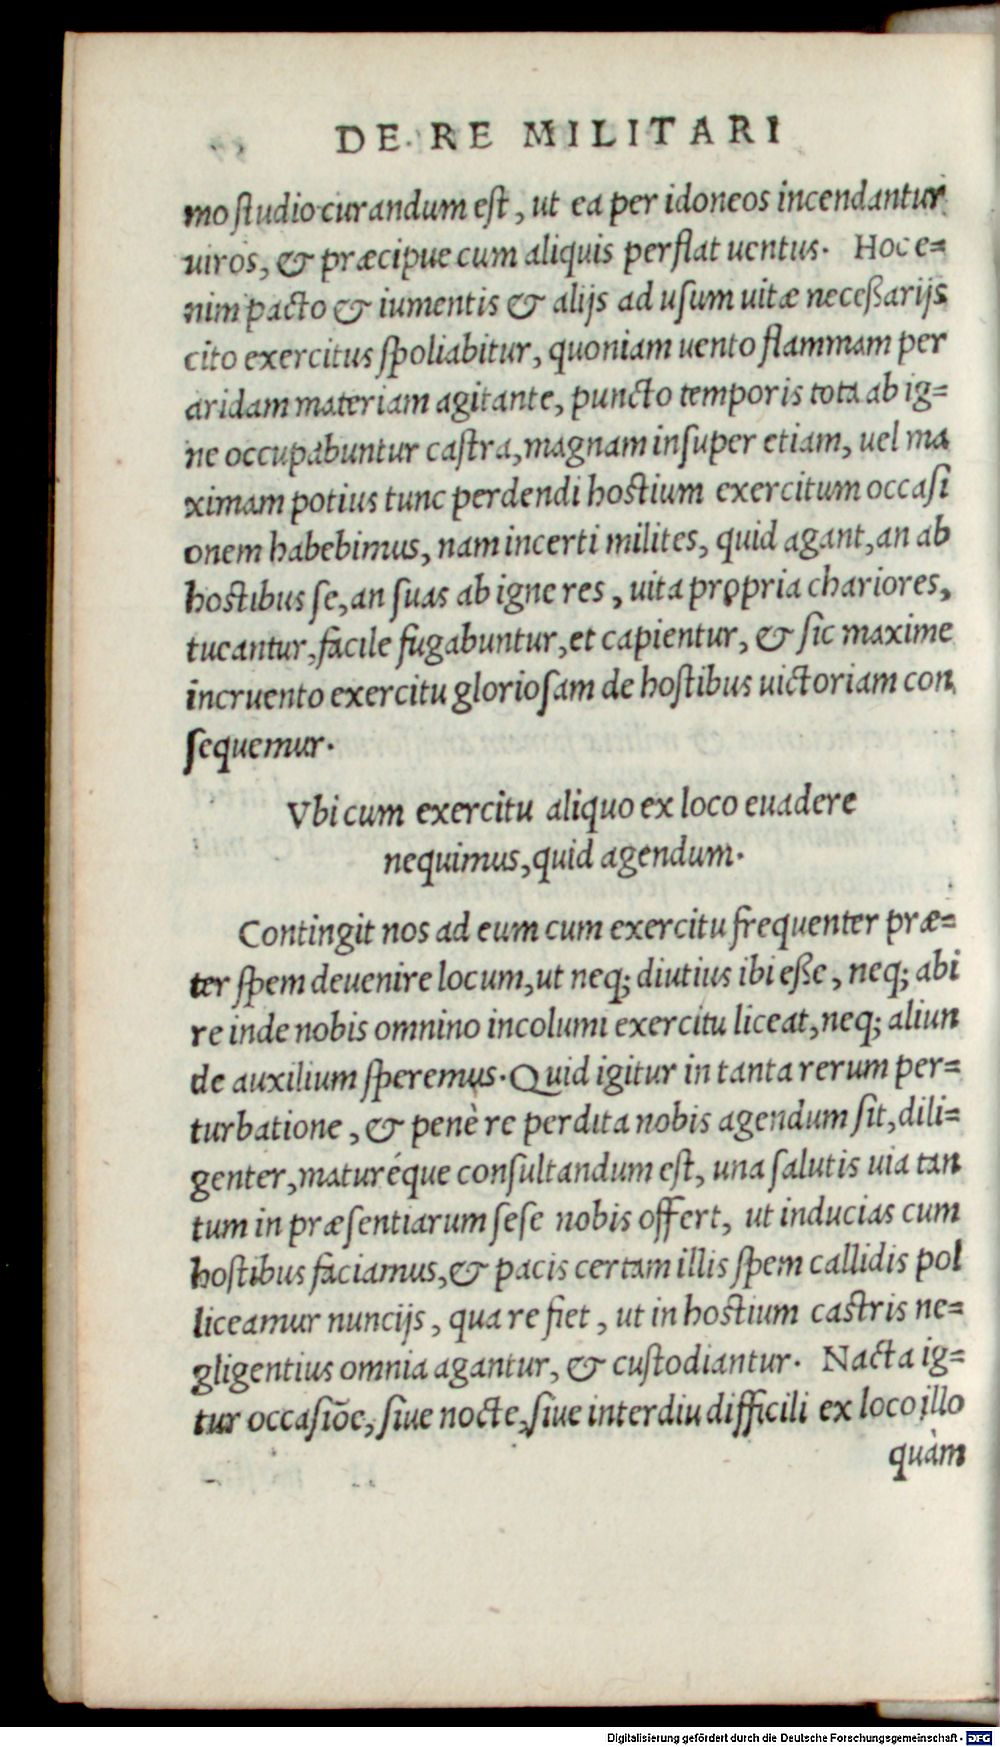 DE RE MILITARI
mo ſtudio curandum eſt, ut ea per idoneos incendantur
uiros, & præcipue cum aliquis perflat uentus. Hoc e=
nim pacto & iumentis & alijs ad uſum uitæ neceßarijs
cito exercitus ſpoliabitur, quoniam uento flammam per
aridam materiam agitante, puncto temporis tota ab ig=
ne occupabuntur caſtra, magnam inſuper etiam, uel ma
ximam potius tunc perdendi hoſtium exercitum occaſi
onem habebimus, nam incerti milites, quid agant, an ab
hoſtibus ſe, an ſuas ab igne res, uita propria chariores,
tucantur, facile fugabuntur, et capientur, & ſic maxime
incruento exercitu glorioſam de hoſtibus uictoriam con
ſequemur.
Vbi cum exercitu aliquo ex loco euadere
nequimus, quid agendum.
Contingit nos ad eum cum exercitu frequenter præ=
ter ſpem deuenire locum, ut neq; diutius ibi eße, neq; abi
re inde nobis omnino incolumi exercitu liceat, neq; aliun
de auxilium ſperemus. Quid igitur in tanta rerum per=
turbatione, & penè re perdita nobis agendum ſit, dili=
genter, maturéque conſultandum eſt, una ſalutis uia tan
tum in præſentiarum ſeſe nobis offert, ut inducias cum
hoſtibus faciamus, & pacis certam illis ſpem callidis pol
liceamur nuncijs, qua re fiet, ut in hoſtium caſtris ne=
gligentius omnia agantur, & cuſtodiantur. Nacta ig=
tur occaſiõe, ſiue nocte, ſiue interdiu difficili ex loco illo
quàm
Digitalisierung gefördert durch die Deutsche Forschungsgemeinschaft - DFG